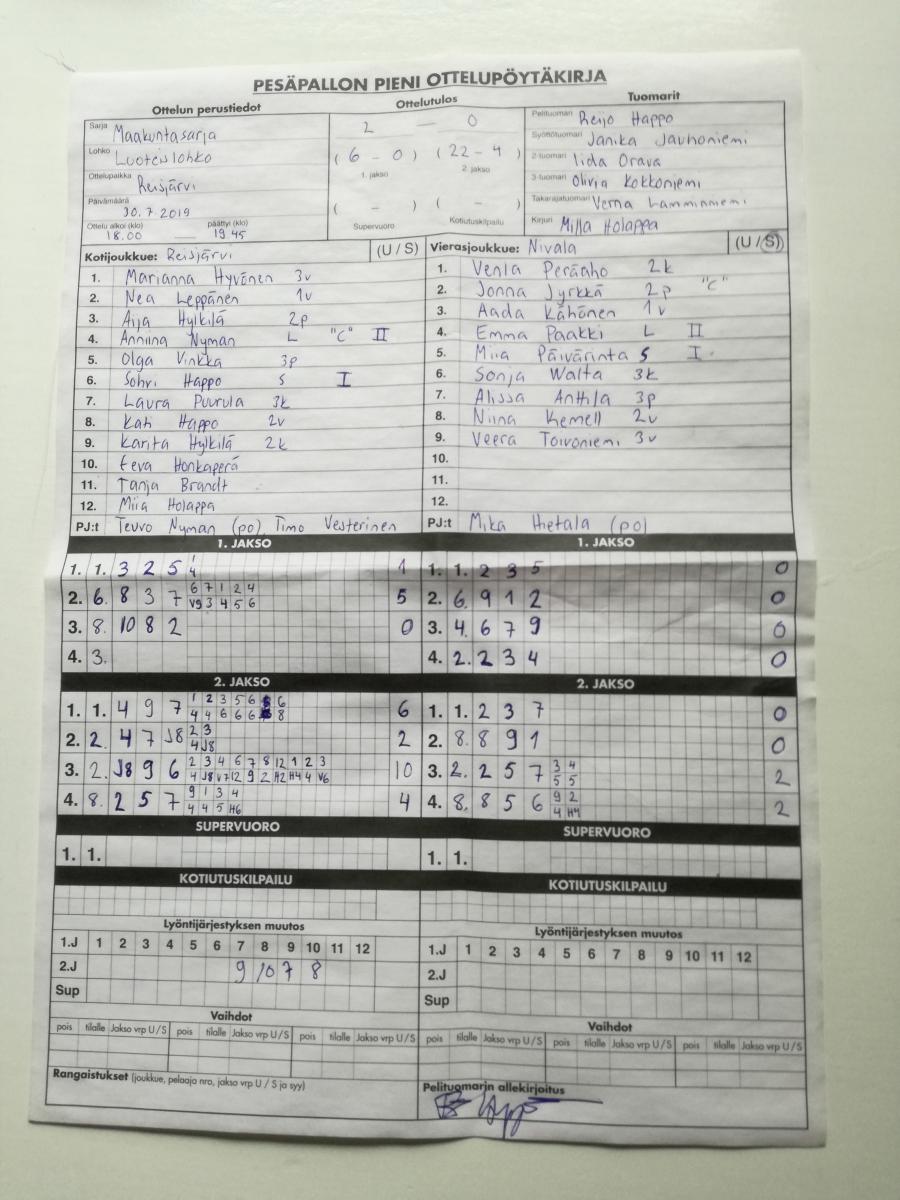 PESÄPALLON PIENI OTTELUPÖYTÄKIRJA
Ottelun perustiedot
Sarja Maakuntasarja
Lohko Luoteislohko
Ottelupaikka Reisjärvi
Päivämäärä 30.7.2019
Ottelu alkoi (klo) päättyi (klo)
18.00 — 19.45
Ottelutulos
2 — 0
( 6 - 0 ) ( 22 - 4 )
1. jakso 2. jakso
( - ) ( - )
Supervuoro Kotiutuskilpailu
Tuomarit
Pelituomari Reijo Happo
Syöttötuomari Janika Jauhoniemi
2-tuomari Iida Orava
3-tuomari Olivia Kokkoniemi
Takarajatuomari Verna Lamminniemi
Kirjuri Milla Holappa
Kotijoukkue: Reisjärvi (U / S)
1. Marianna Hyvönen 3v
2. Nea Leppänen 1v
3. Aija Hylkilä 2p
4. Anniina Nyman L "C" II
5. Olga Vinkka 3p
6. Sohvi Happo S I
7. Laura Puurula 3k
8. Kati Happo 2v
9. Karita Hylkilä 2k
10. Eeva Honkaperä
11. Tanja Brandt
12. Miia Holappa
PJ:t Teuvo Nyman (po) Timo Vesterinen
Vierasjoukkue: Nivala (U / S)
1. Venla Peräaho 2k
2. Jonna Jyrkkä 2p "C"
3. Aada Kähönen 1v
4. Emma Paakki L II
5. Miia Päivärinta S I
6. Sonja Walta 3k
7. Alissa Anttila 3p
8. Niina Kemell 2v
9. Veera Toivoniemi 3v
10.
11.
12.
PJ:t Mika Hietala (po)
1. JAKSO
1. 1. 3 2 5 1 1
4
2. 6. 8 3 7 6 7 1 2 4 5
V9 3 4 5 6
3. 8. 10 8 2 0
4. 3.
1. JAKSO
1. 1. 2 3 5 0
2. 6. 9 1 2 0
3. 4. 6 7 9 0
4. 2. 2 3 4 0
2. JAKSO
1. 1. 4 9 7 1 2 3 5 6 6 6
4 4 6 6 6 8
2. 2. 4 7 J8 2 3 2
4 J8
3. 2. J8 9 6 2 3 4 6 7 8 12 1 2 3 10
4 J8 V7 12 9 2 H2 H4 4 V6
4. 8. 2 5 7 9 1 3 4 4
4 4 5 H6
2. JAKSO
1. 1. 2 3 7 0
2. 8. 8 9 1 0
3. 2. 2 5 7 3 4 2
5 5
4. 8. 8 5 6 9 2 2
4 H4
SUPERVUORO
1. 1.
SUPERVUORO
1. 1.
KOTIUTUSKILPAILU
KOTIUTUSKILPAILU
Lyöntijärjestyksen muutos
1.J 1 2 3 4 5 6 7 8 9 10 11 12
2.J 9 10 7 8
Sup
Lyöntijärjestyksen muutos
1.J 1 2 3 4 5 6 7 8 9 10 11 12
2.J
Sup
Vaihdot
pois tilalle Jakso vrp U / S pois tilalle Jakso vrp U / S pois tilalle Jakso vrp U / S
Vaihdot
pois tilalle Jakso vrp U / S pois tilalle Jakso vrp U / S pois tilalle Jakso vrp U / S
Rangaistukset (joukkue, pelaaja nro, jakso vrp U / S ja syy)
Pelituomarin allekirjoitus